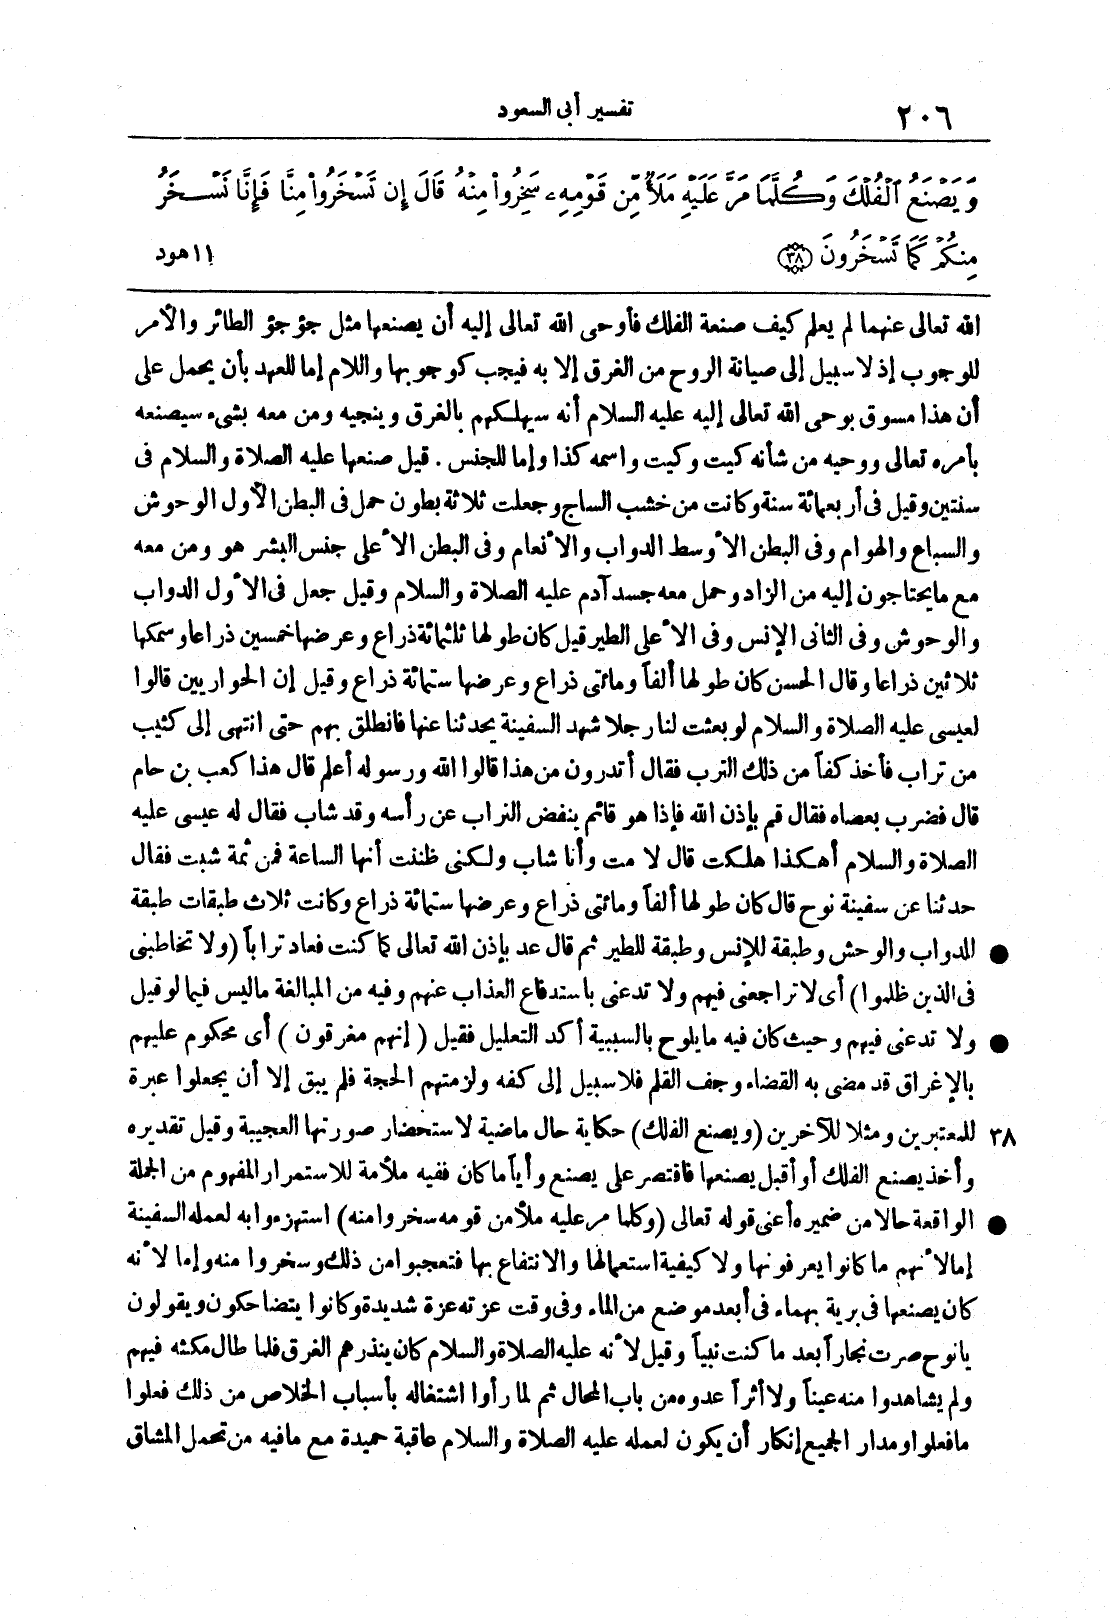 ٢٠٦ تفسير أبى السعود
وَيَصْنَعُ الْفُلْكَ وَكُلَّمَا مَرَّ عَلَيْهِ مَلَأٌ مِّن قَوْمِهِۦ سَخِرُوا۟ مِنْهُ قَالَ إِن تَسْخَرُوا۟ مِنَّا فَإِنَّا نَسْخَرُ
مِنكُمْ كَمَا تَسْخَرُونَ ﴿٣٨﴾ ١١ هود
الله تعالى عنهما لم يعلم كيف صنعة الفلك فأوحى الله تعالى إليه أن يصنعها مثل جؤجؤ الطائر والأمر
للوجوب إذ لا سبيل إلى صيانة الروح من الغرق إلا به فيجب كوجوبها واللام إما للعهد بأن يحمل على
أن هذا مسوق بوحى الله تعالى إليه عليه السلام أنه سيهلكهم بالغرق وينجيه ومن معه بشىء سيصنعه
بأمره تعالى ووحيه من شأنه كيت وكيت واسمه كذا وإما للجنس . قيل صنعها عليه الصلاة والسلام فى
سنتين وقيل فى أربعمائة سنة وكانت من خشب الساج وجعلت ثلاثة بطون حمل فى البطن الأول الوحوش
والسباع والهوام وفى البطن الأوسط الدواب والأنعام وفى البطن الأعلى جنس البشر هو ومن معه
مع ما يحتاجون إليه من الزاد وحمل معه جسد آدم عليه الصلاة والسلام وقيل جعل فى الأول الدواب
والوحوش وفى الثانى الإنس وفى الأعلى الطير قيل كان طولها ثلثمائة ذراع وعرضها خمسين ذراعا وسمكها
ثلاثين ذراعا وقال الحسن كان طولها ألفاً ومائتى ذراع وعرضها ستمائة ذراع وقيل إن الحواريين قالوا
لعيسى عليه الصلاة والسلام لو بعثت لنا رجلا شهد السفينة يحدثنا عنها فانطلق بهم حتى انتهى إلى كثيب
من تراب فأخذ كفاً من ذلك الترب فقال أتدرون من هذا قالوا الله ورسوله أعلم قال هذا كعب بن حام
قال فضرب بعصاه فقال قم بإذن الله فإذا هو قائم ينفض التراب عن رأسه وقد شاب فقال له عيسى عليه
الصلاة والسلام أهكذا هلكت قال لا مت وأنا شاب ولكنى ظننت أنها الساعة فمن ثمة شبت فقال
حدثنا عن سفينة نوح قال كان طولها ألفاً ومائتى ذراع وعرضها ستمائة ذراع وكانت ثلاث طبقات طبقة
● للدواب والوحش وطبقة للإنس وطبقة للطير ثم قال عد بإذن الله تعالى كما كنت فعاد تراباً (ولا تخاطبنى
فى الذين ظلموا) أى لا تراجعنى فيهم ولا تدعنى باستدفاع العذاب عنهم وفيه من المبالغة ما ليس فيما لو قيل
● ولا تدعنى فيهم وحيث كان فيه ما يلوح بالسببية أكد التعليل فقيل (إنهم مغرقون) أى محكوم عليهم
بالإغراق قد مضى به القضاء وجف القلم فلا سبيل إلى كفه ولزمتهم الحجة فلم يبق إلا أن يجعلوا عبرة
٣٨ للمعتبرين ومثلا للآخرين (ويصنع الفلك) حكاية حال ماضية لاستحضار صورتها العجيبة وقيل تقديره
وأخذ يصنع الفلك أو أقبل يصنعها فاقتصر على يصنع وأياً ما كان ففيه ملأمة للاستمرار المفهوم من الجملة
● الواقعة حالا من ضميره أعنى قوله تعالى (وكلما مر عليه ملأ من قومه سخروا منه) استهزءوا به لعمله السفينة
إما لأنهم ما كانوا يعرفونها ولا كيفية استعمالها والانتفاع بها فتعجبوا من ذلك وسخروا منه وإما لأنه
كان يصنعها فى برية بهماء فى أبعد موضع من الماء وفى وقت عزته عزة شديدة وكانوا يتضاحكون ويقولون
يا نوح صرت نجاراً بعد ما كنت نبياً وقيل لأنه عليه الصلاة والسلام كان ينذرهم الغرق فلما طال مكثه فيهم
ولم يشاهدوا منه عيناً ولا أثراً عدوه من باب المحال ثم لما رأوا اشتغاله بأسباب الخلاص من ذلك فعلوا
ما فعلوا ومدار الجميع إنكار أن يكون لعمله عليه الصلاة والسلام عاقبة حميدة مع ما فيه من تحمل المشاق